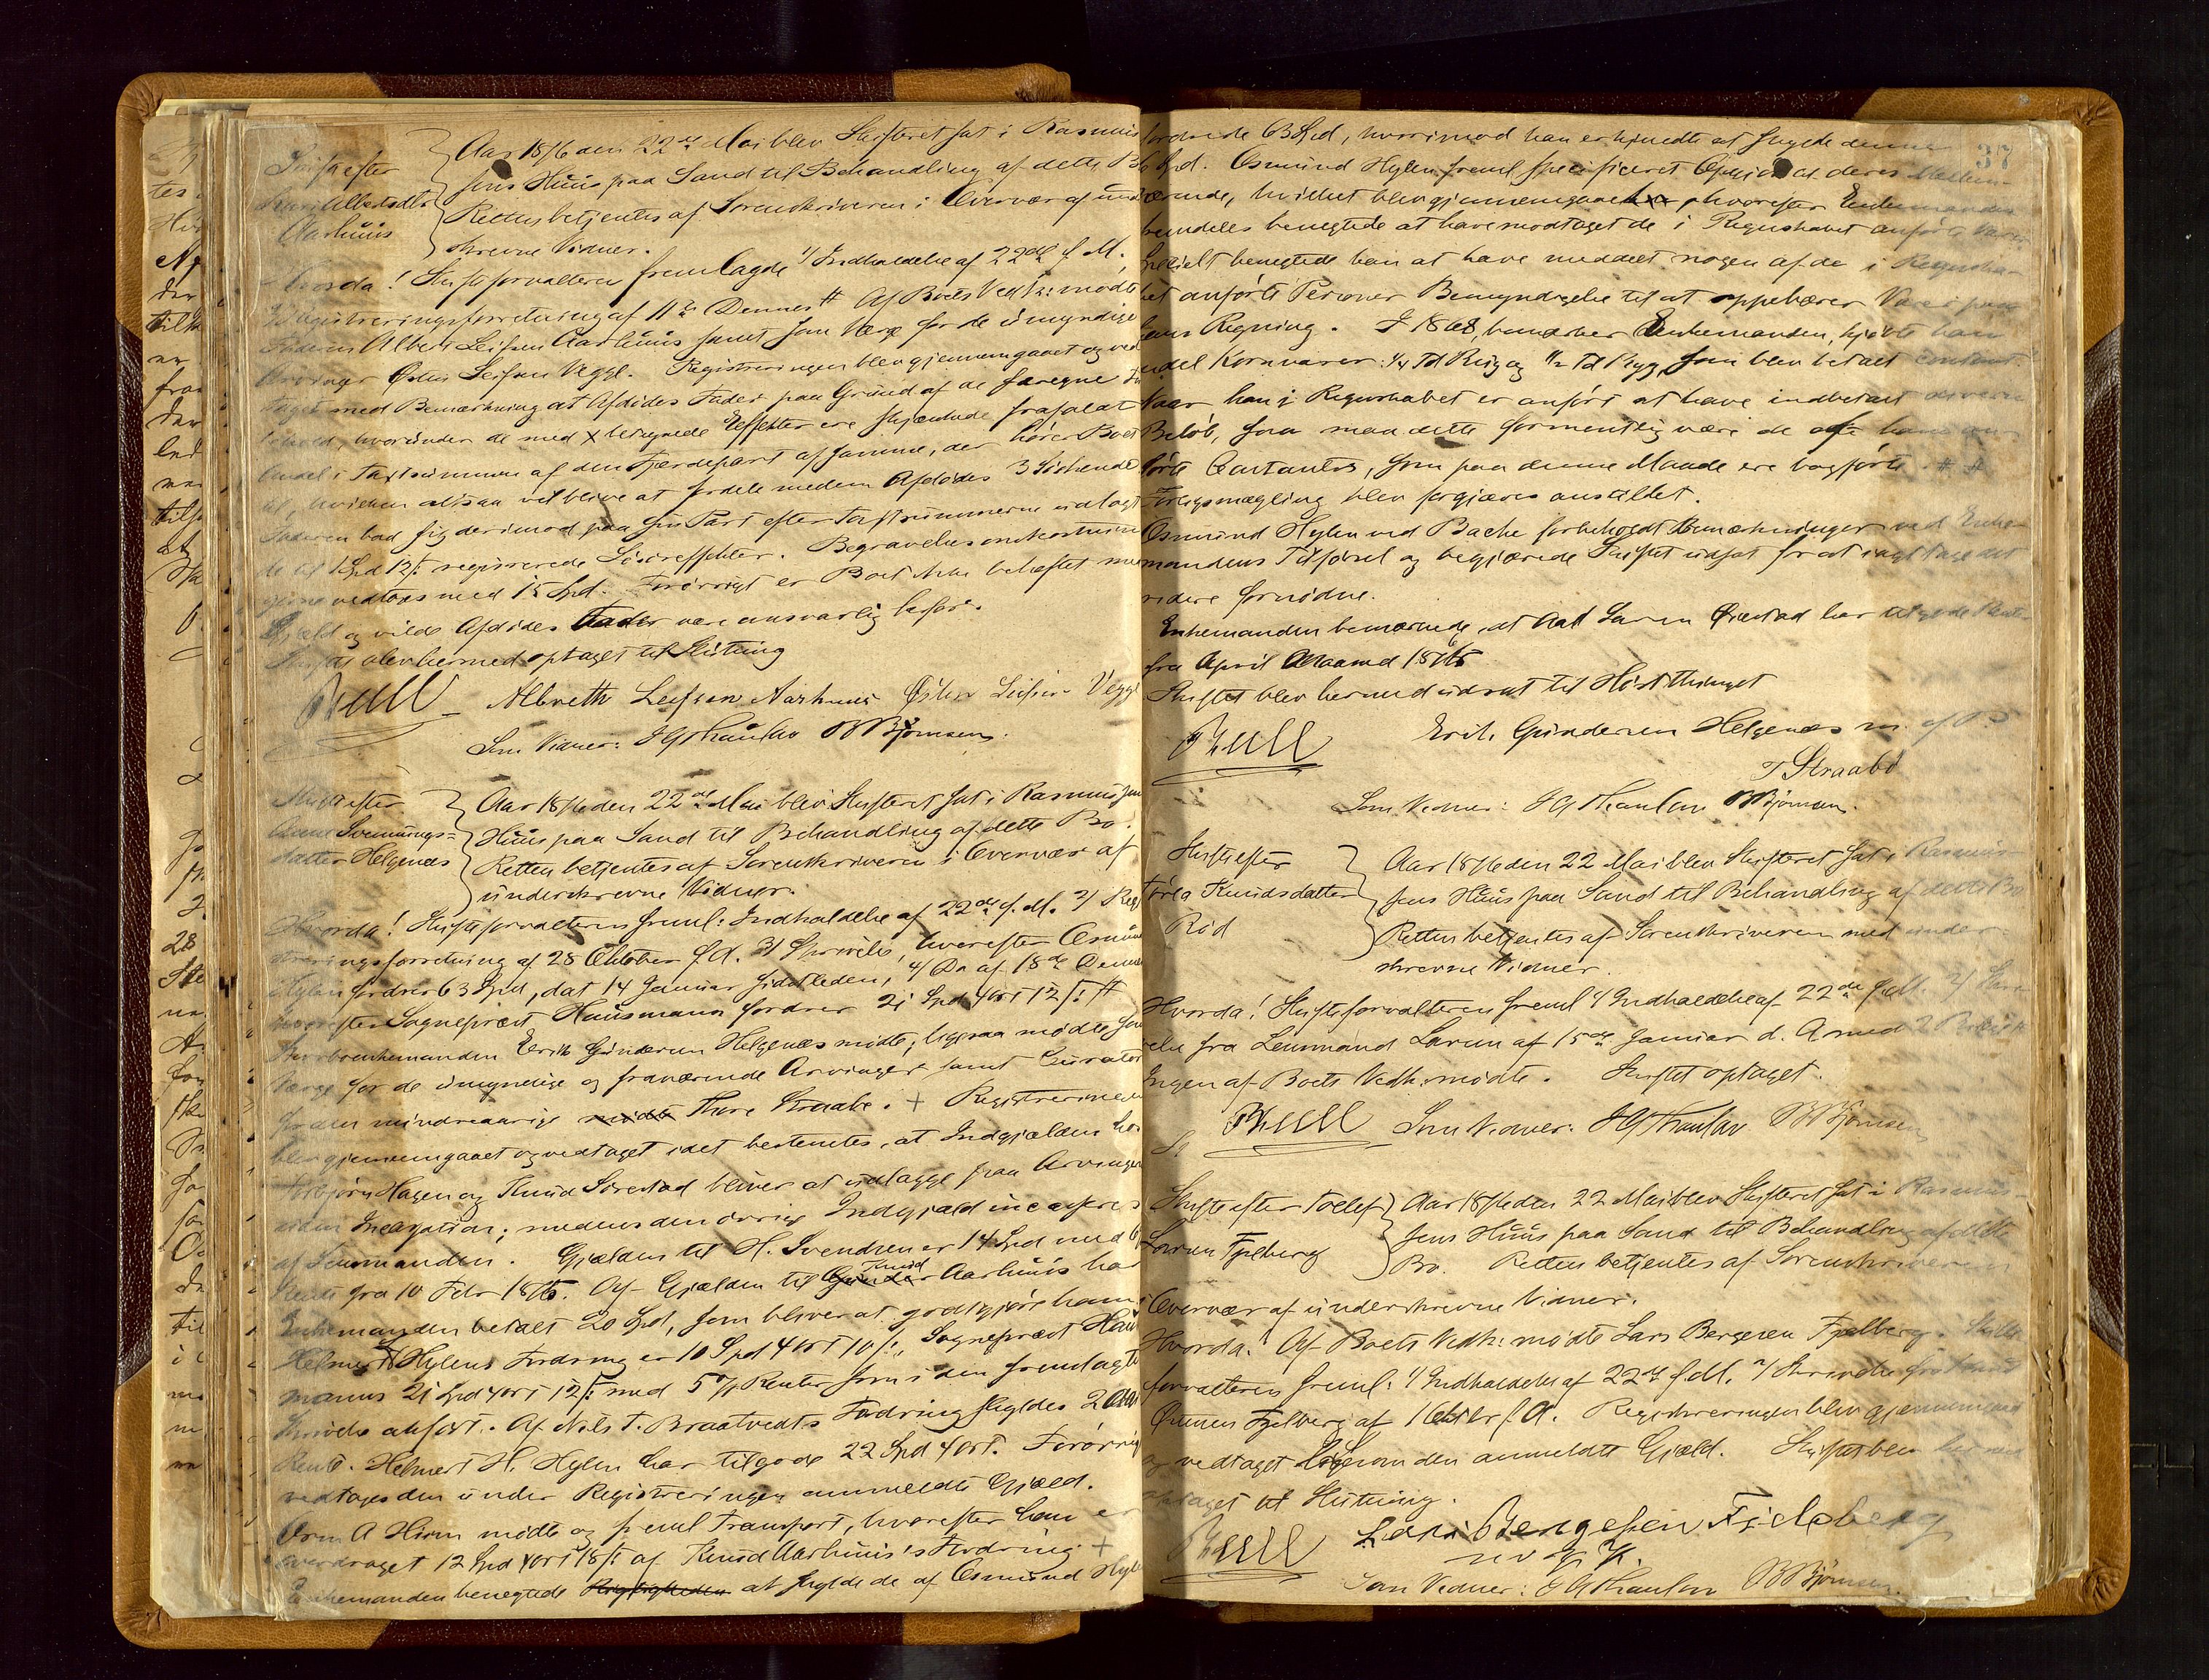 Skifte efter
Kari Albertsdtr
Aarhuus
Aar 1876 den 22de Mai blev Skifteret sat i Rasmus
Jens Huus paa Sand til Behandling af dette B
Retten betjentes af Sorenskriveren i Overvær af und
skrevne Vidner.
Hvorda! Skifteforvalteren fremlagde 1/ Indkaldelse af 22de f. M.,
2/ Registreringsforretning af 11te Dennes # Af Boets Vedk: mødte
Faderen Albert Leifsen Aarhuus samt som Værge for de umyndige
Arvinger Østen Leifsen Vegge. Registreringen blev gjennemgaaet og ved
taget med Bemærkning at Afdødes Fader paa Grund af de
hvorunder de med x betegnede Effekter ere skjænkede frafalder
Andel i Taxtsummen af den Fjerdepart af samme, der hører Boet
til, hvilken altsaa vil blive at fordele mellem Afdødes 3 Søskende
Faderen bad sig derimod paa sin Part efter Taxtsummerne udlagt
de til 1 Spd 12 s registrerede Løsøreffekter. Begravelsesomkostnin
gerne vedtoges med 15 Spd. Forøvrigt er Boet ikke behæftet med
Gjæld og vilde Afdødes Fader være ansvarlig herfor.
Skiftet blev hermed optaget til Slutning
Bull Albreth Leifsen Aarhuus Østen Leifsen Vegge
Som Vidner: J G Thaulow B Bjørnsen.
Skifte efter
Anne Svennungs=
datter Helgenæs
Aar 1876 den 22de Mai blev Skifteret sat i Rasmus Jens
Huus paa Sand til Behandling af dette Bo.
Retten betjentes af Sorenskriveren i Overvær af
underskrevne Vidner.
Hvorda! Skifteforvalteren freml: Indkaldelse af 22de f. M. 2/ Reg
streringsforretning af 28 Oktober f. A. 3/ Skrivelse, hvorefter Osmund
Hylen fordrer 63 Spd, dat 14 Januar sidstleden, 4/ Do af 18de Dennes
hvorefter Sogneprest Hausmann fordrer 21 Spd 4 ort 12 s #
Sterboenkemanden Erik Gundersen Helgenæs mødte; ligesaa mødte som
Værge for de umyndige og fraværende Arvinger samt Curator
for den mindreaarige Thore Straabø. + Registreringen
blev gjennemgaaet og vedtaget idet bestemtes, at Indgjælden hos
Torbjørn Hagen og Knud Sørestad bliver at udlægge paa Arvingerne
uden Incassation; medens den øvrige Indgjæld incasseres
af Lensmanden. Gjælden til H. Svendsen er 14 Spd med 6
Rente fra 10 Febr 1876. Af Gjælden til Knud Aarhuus har
Enkemanden betalt 20 Spd, som bliver at godtgjøre ham.
Helmert Hylens Fordring er 10 Spd 4 ort 10 s, Sogneprest Haus
manns 21 Spd 4 ort 12 s med 5 % Renter som i den fremlagte
Skrivelse anført. Af Nils T. Braatvedts Fordring skyldes 2 Aars
Rente. Helmert H. Hylen har tilgode 22 Spd 4 ort. Forøvrig
vedtoges den under Registreringen anmeldte Gjæld.
Orm A Hiim mødte og freml Transport, hvorefter han er
overdraget 12 Spd 4 ort 18 s af Knud Aarhuus's Fordring +
Enkemanden benegtede Rigtigheden at skylde de af Osmund Hylen
37
fordrede 63 Spd, hvorimod han erkjendte at skylde denne
Spd. Osmund Hylen freml specificeret Opgjør at deres Mellem-
værende, hvilket blev gjennemgaaet, hvorefter Enkemanden
benegtede at have modtaget de i Regnskabet anførte Varer
Specielt benegtede han at have meddelt nogen af de i Regnska-
bet anførte Personer Bemyndigelse til at oppebære Varer paa
hans Regning. I 1868, bemærker Enkemanden, kjøbte han
endel Kornvarer: 1/4 Td Rug og 1/2 Td Bygg, som blev betalt contant.
Naar han i Regnskabet er anført at have indbetalt diverse
Beløb, saa maa dette formentlig være de af ham
førte Contantes, som paa denne Maade ere bogførte. # #
Forligsmægling blev forgjæves anstillet.
Osmund Hylen ved Bache forbeholdt Bemærkninger ved Enke-
mandens Tilførsel og begjærede Skiftet udsat for at iagttage det
videre fornødne.
Enkemanden bemærkede, at Lars Ørestad har tilgode Rente
fra April Maaned 1875
Skiftet blev hermed udsat til Høstthinget
Bull Erik Gundersen Helgenæs m. p. P.
T Straabø
Som Vidner: J G Thaulow B Bjørnsen.
Skifte efter
Tørla Knudsdatter
Rød
Aar 1876 den 22 Mai blev Skifteret sat i Rasmus
Jens Huus paa Sand til Behandling af dette Bo
Retten betjentes af Sorenskriveren med under
skrevne Vidner.
Hvorda! Skifteforvalteren freml 1/ Indkaldelse af 22de f. M. 2/ Skri
velse fra Lensmand Larsen af 15de Januar d. A med 2 Bilag
Ingen af Boets Vedk: mødte. Skiftet optaget.
Bull Som Vidner: J G Thaulow B Bjørnsen
Sk
Skifte efter Tollef
Larsen Fjelberg
Aar 1876 den 22 Mai blev Skifteret sat i Rasmus
Jens Huus paa Sand til Behandling af dette
Bo. Retten betjentes af Sorenskriveren
Overvær af underskrevne Vidner.
Hvorda! Af Boets Vedk: mødte Lars Bergesen Fjelberg. Skifte
forvalteren freml: 1/ Indkaldelse af 22de f. M. 2/ Skrivelse fra
Fjelberg af 1 Oktbr f. A. Registreringen blev gjennemgaaet
og vedtaget ligesom den anmeldte Gjæld. Skiftet blev hermed
optaget til Slutning.
Bull Lars Bergesen Fjelberg
Som Vidner: J G Thaulow B Bjørnsen.